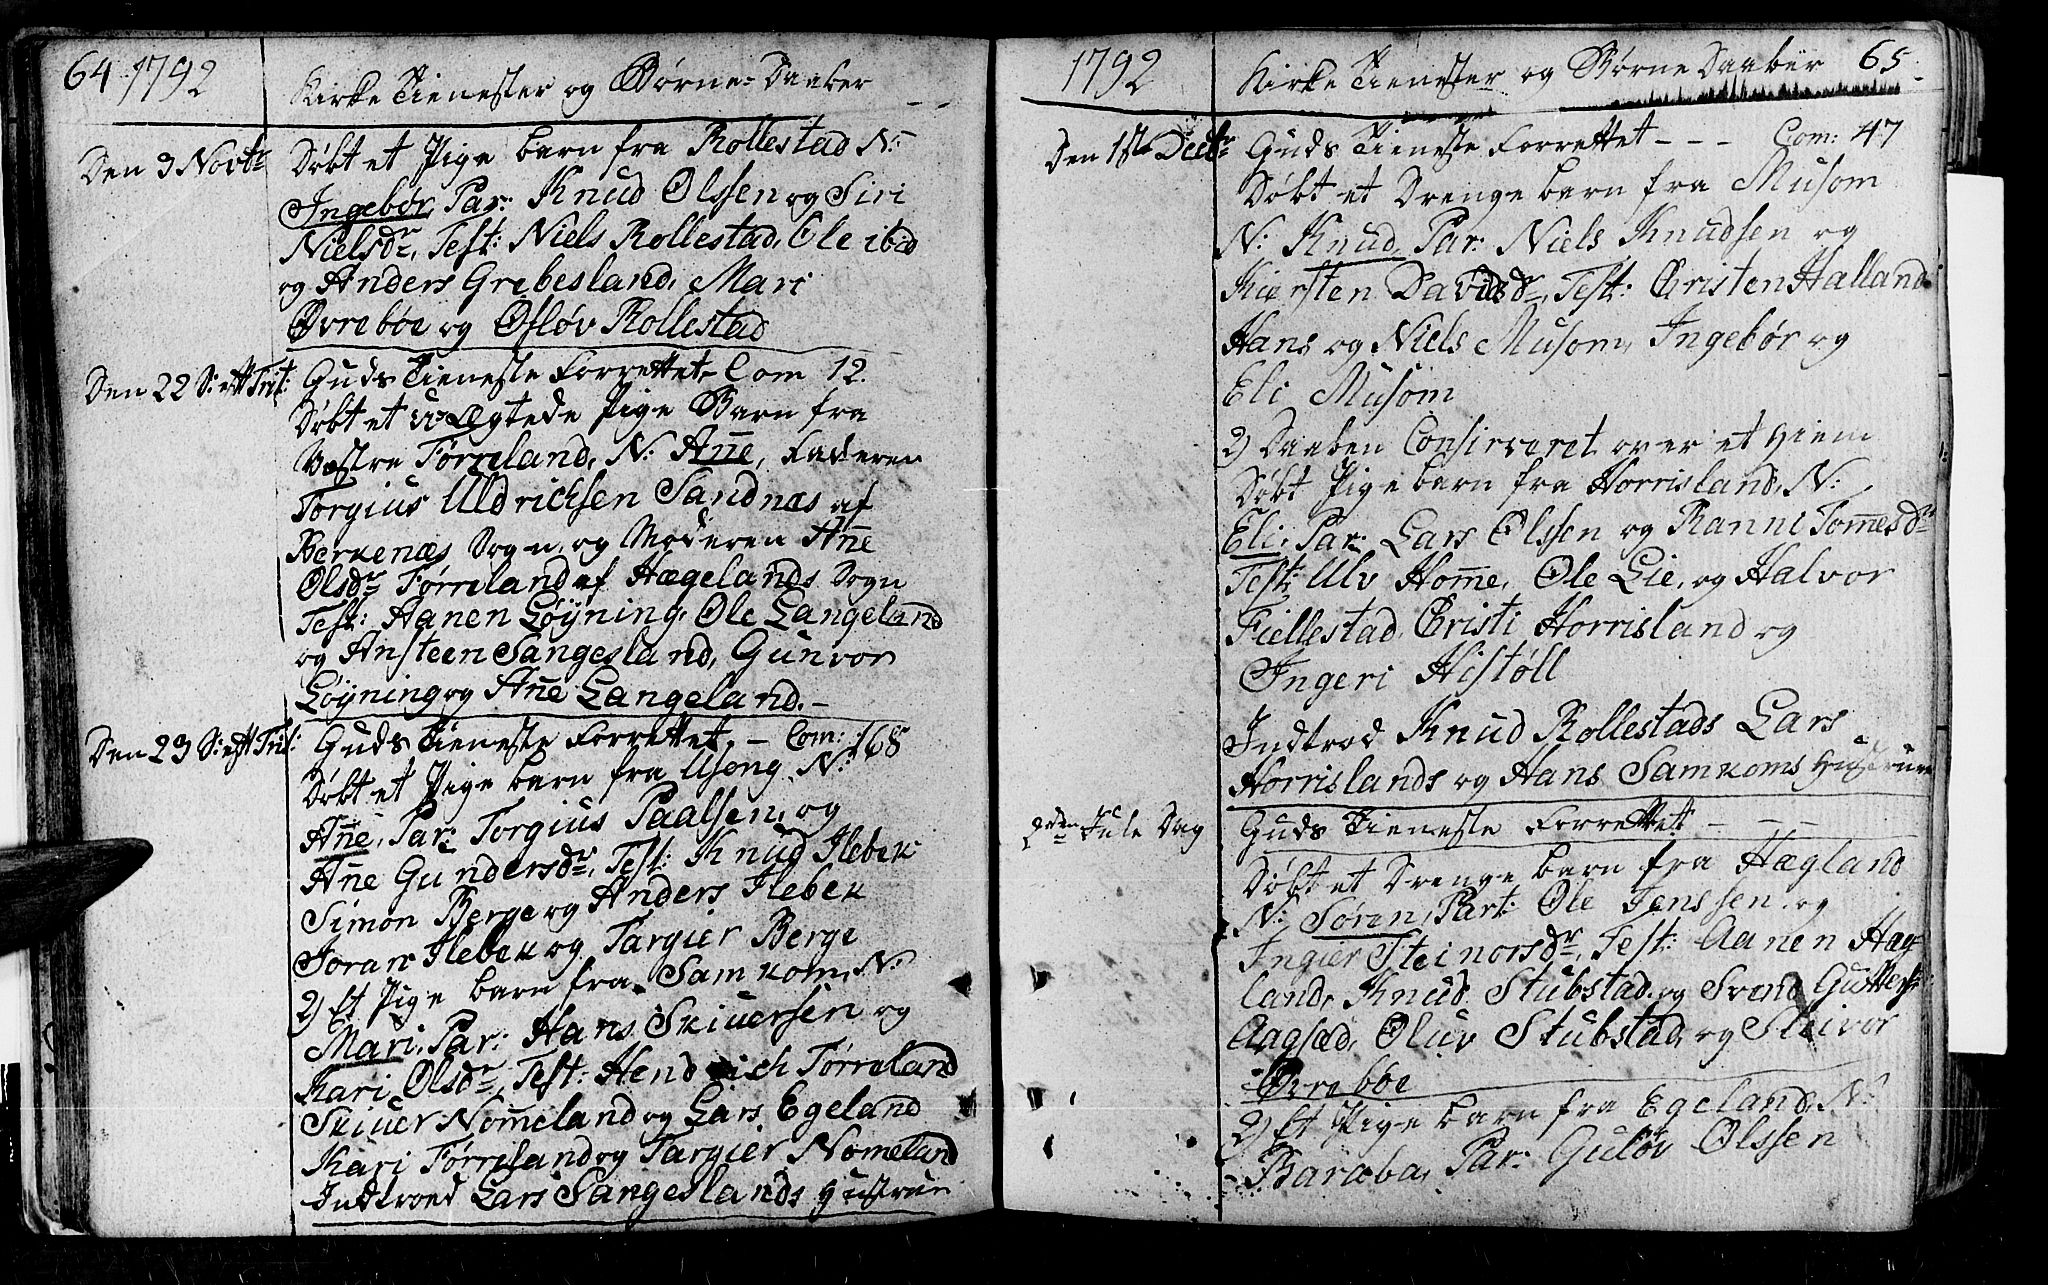 64 1792
Kirke Tienester og Børne-Daaber
Den 3 Novbr
Døbt et Pige barn fra Rollestad N:
Ingebør, Par: Knud Olssen og Siri
Nielsdr, Test: Niels Rollestad, Ole ibid
og Anders Grebesland, Mari
Øvrebøe og Ofløv Rollestad
Den 22 S: eft Trit:
Guds Tieneste Forrettet Com 12.
Døbt et u-Ægtede Pige Barn fra
Vestre Førreland, N: Añe, Faderen
Torgius Uldrichsen Sandnæs af
Berkenæs Sogn, og Moderen Añe
Olsdr Førreland af Hægelands Sogn
Test: Aanen Løyning, Ole Langeland
og Ansteen Sangesland, Gunvor
Løyning og Añe Langeland.-
Den 23 S: eft Trit:
Guds Tieneste Forrettet, - Com: 168
Døbt et Pige barn fra Usong N:
Añe, Par: Torgius Paalsen, og
Añe Gundersdr, Test: Knud Ilebek
Simon Berge og Anders Ilebek
Joran Ilebek og Targier Berge
2) Et Pige barn fra Samkom, N:
Mari, Par: Hans Skiuersen og
Kari Olsdr, Test: Hendrich Førreland
Skiuer Nom̃eland og Lars Egeland
Kari Førreland og Targier Nomeland
Indtroed Lars Sangeslands Hustrue
1792
Kirke Tienester og Børne Daaber 65
Den 1ste Decbr
Guds Tieneste Forrettet - - - Com: 47
Døbt et Drenge barn fra Musom
N: Knud, Par: Niels Knudsen og
Kiersten Davidsdr, Test: Cristen Halland
Hans og Niels Musom, Ingebør og
Eli Musom
2) Daaben Consirveret over et Hiem
Døbt Pige barn fra Horrisland, N:
Eli, Par: Lars Olssen og Ranni Tom̃esdr
Test: Ulv Hom̃e, Ole Lie, og Halvor
Fiellestad, Cristi Horrisland og
Ingeri Histøll
Indtrod Knud Rollestads Lars
Horrislands og Hans Samkoms Hustruer
2den Jule Dag
Guds Tieneste Forrettet - - -
Døbt et Drenge barn fra Hægland
N: Søren, Part: Ole Jenssen og
Ingier Steinorsdr, Test: Aanen Hæg-
land, Knud Stubstad og Svend Gutters:
Aagsæd, Oluv Stubstad, og Steivor
Øvrebøe
2) Et Pige barn fra Egeland, N:
Baræba, Par: Guløv Olssen